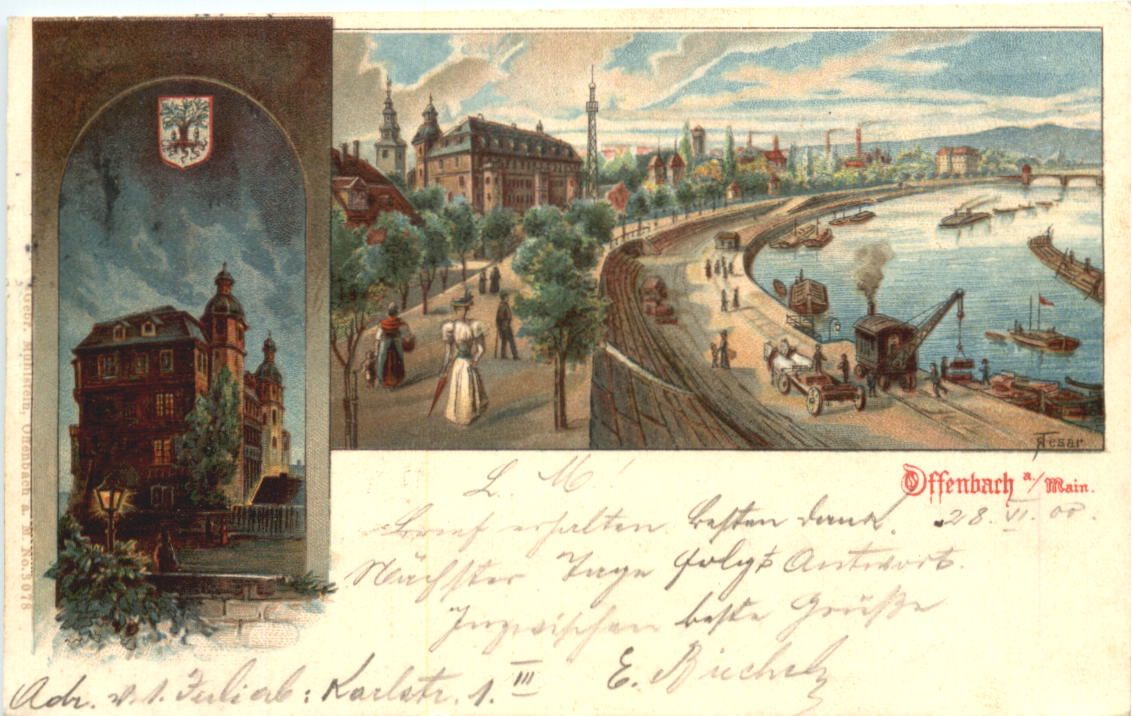 Tesar
Offenbach a/Main.
L. M!
Brief erhalten besten dank. 28. VI. 00.
Nächster Tage folgt Antwort.
Inzwischen beste Grüße
E.
Adr. v. 1. Juli ab: Karlstr. 1. III
Mühlstein, Offenbach a. M. No. 3078